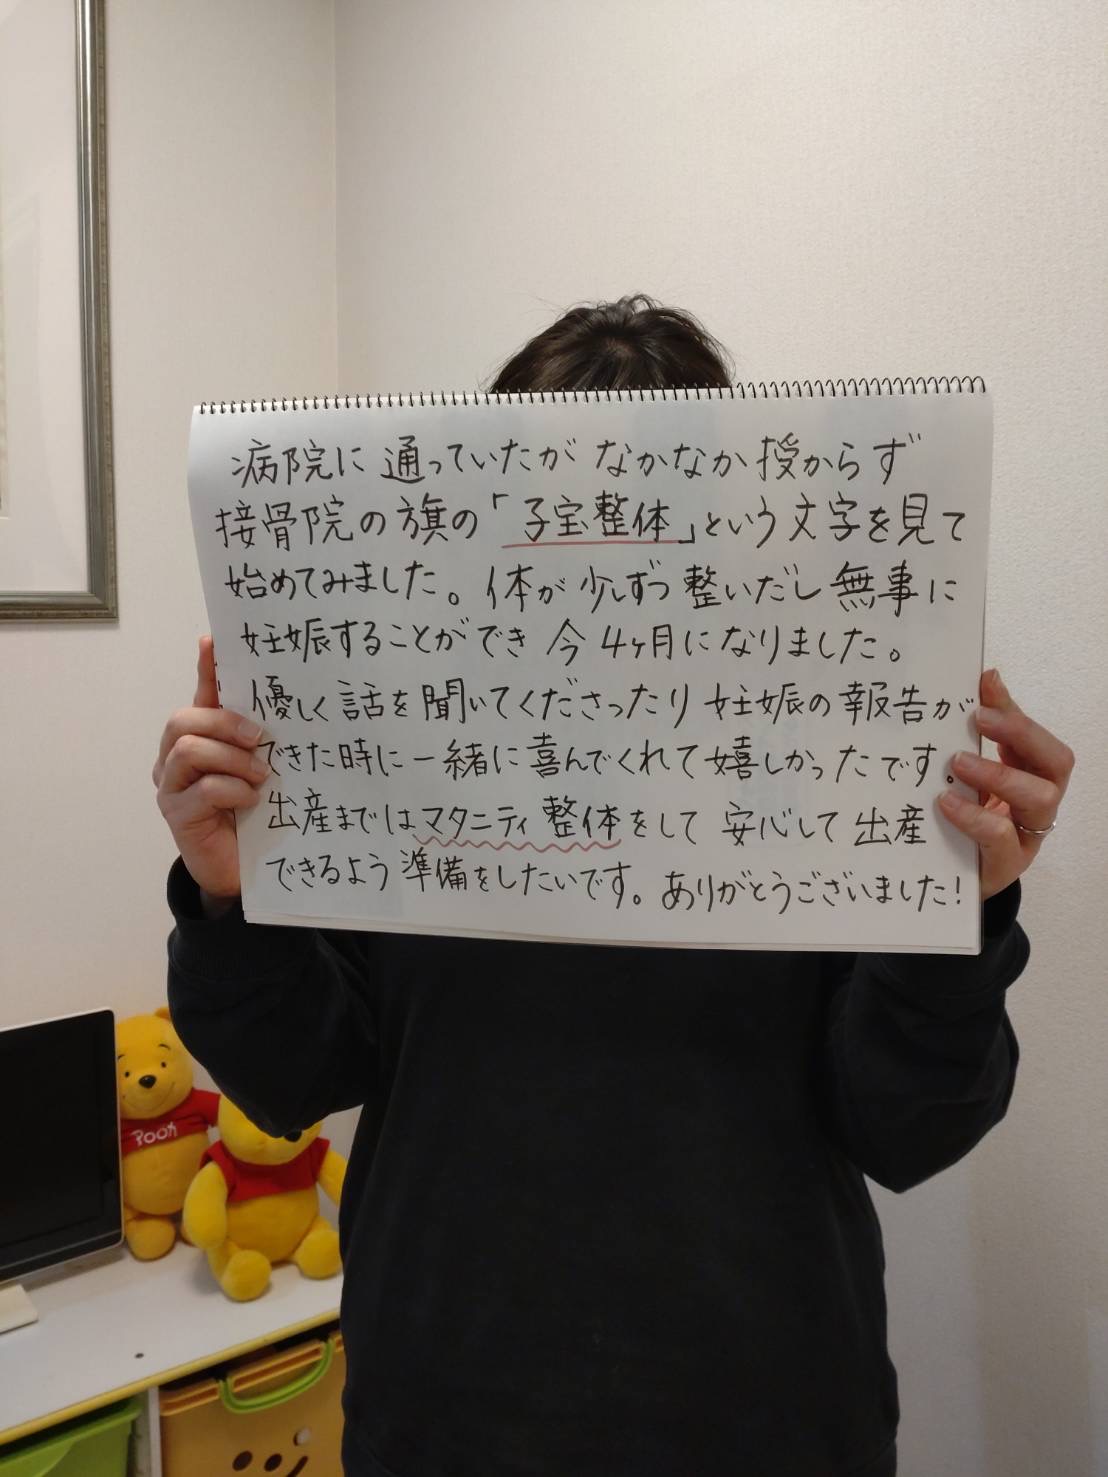 病院に通っていたが なかなか授からず
接骨院の旗の「子宝整体」という文字を見て
始めてみました。体が少しずつ整いだし無事に
妊娠することができ 今4ヶ月になりました。
優しく話を聞いてくださったり妊娠の報告が
できた時に一緒に喜んでくれて嬉しかったです。
出産まではマタニティ整体をして 安心して出産
できるよう準備をしたいです。ありがとうございました!
POOH